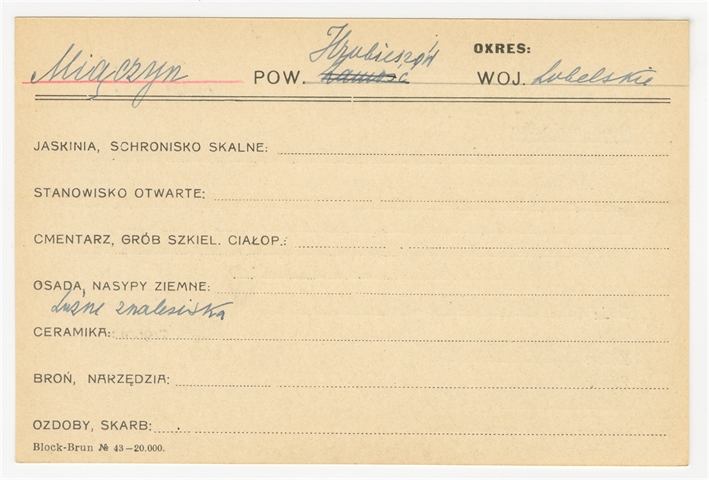 Hrubieszów
OKRES:
Miączyn POW. Zamość WOJ. Lubelskie
JASKINIA, SCHRONISKO SKALNE:
STANOWISKO OTWARTE:
CMENTARZ, GRÓB SZKIEL. CIAŁOP.:
OSADA, NASYPY ZIEMNE:
Luźne znaleziska
CERAMIKA:
BROŃ, NARZĘDZIA:
OZDOBY, SKARB:
Block-Brun № 43—20.000.